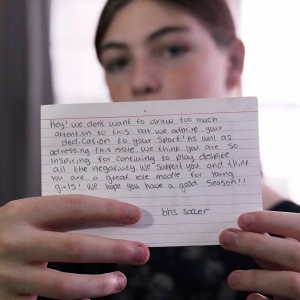 Hey! we dont want to draw too much
attention to this but we admire your
dedication to your sport! As well as
adressing this issue. We think you are so
inspiring for continuing to play despite
all the negativity. We support you and think
you are a great role modle for young
girls! We hope you have a good season!!
bhs soccer